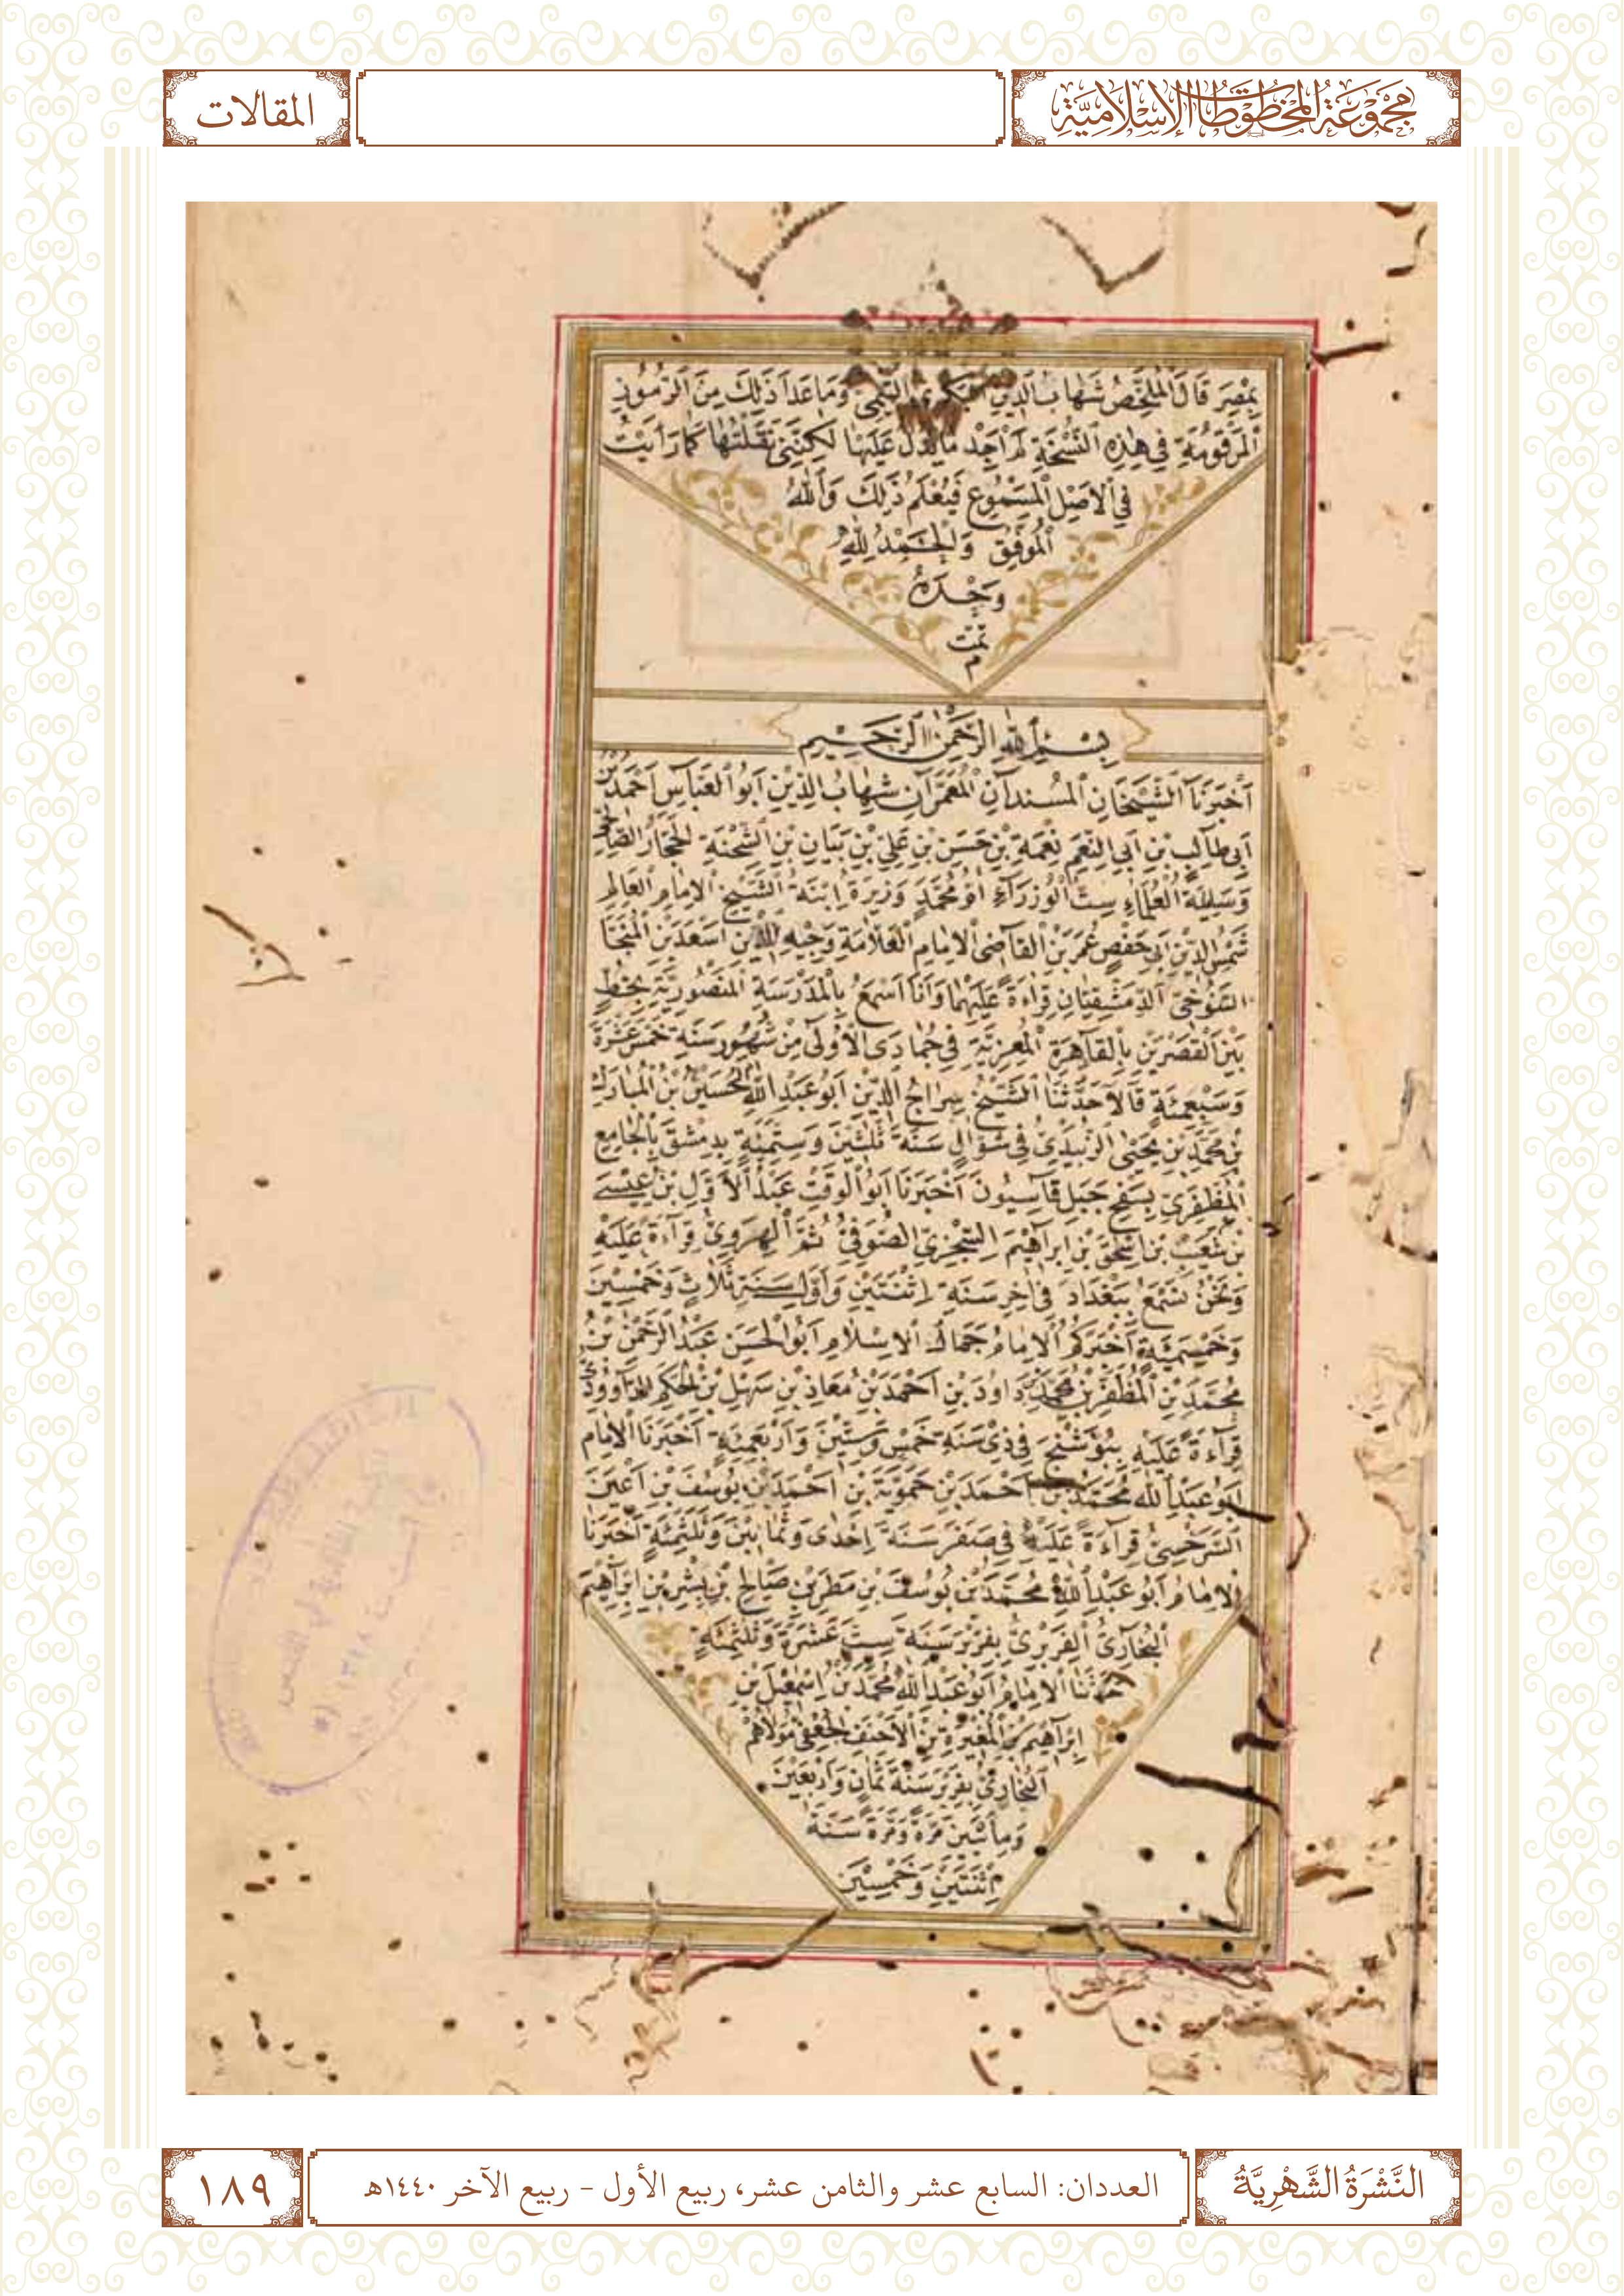 مَجْمُوعَةُ المَخْطُوطَاتِ الإِسْلَامِيَّةِ
المقالات
بِمِصْرَ قَالَ الْمُلَخِّصُ شَهَابُ الدِّينِ الْبَكْرِي التَّيْمِي وَمَا عَدَا ذَلِكَ مِنَ الرُّمُوزِ
الْمَرْقُومَةِ فِي هٰذِهِ النُّسْخَةِ لَمْ اَجِدْ مَا يَدُلُّ عَلَيْهَا لٰكِنَّنِي نَقَلْتُهَا كَمَا رَاَيْتُ
فِي الْاَصْلِ الْمَسْمُوعِ فَيُعْلَمُ ذَلِكَ وَاللهُ
الْمُوَفِّقُ وَالْحَمْدُ لِلّٰهِ
وَحْدَهُ
تمت
م
بِسْمِ اللهِ الرَّحْمٰنِ الرَّحِيمِ
اَخْبَرَنَا الشَّيْخَانِ الْمُسْنِدَانِ الْمُعَمَّرَانِ شِهَابُ الدِّيْنِ اَبُو الْعَبَّاسِ اَحْمَدُ بْنُ
اَبِي طَالِبِ بْنِ اَبِي النِّعَمِ نِعْمَةِ بْنِ حَسَنِ بْنِ عَلِيِّ بْنِ بَيَانِ بْنِ الشِّحْنَةِ الْحَجَّارُ الصَّالِحِي
وَسَيِّدَةُ الْعُلَمَاءِ سِتُّ الْوُزَرَآءِ اُمُّ مُحَمَّدٍ وَزِيرَةُ اِبْنَةُ الشَّيْخِ الْاِمَامِ الْعَالِمِ
شَمْسِ الدِّيْنِ اَبِي حَفْصٍ عُمَرَ بْنِ الْقَاضِي الْاِمَامِ الْعَلَّامَةِ وَجِيْهِ الدِّيْنِ اَسْعَدَ بْنِ الْمُنَجَّا
التَّنُوخِيِّ الدِّمَشْقِيَّانِ قِرَاءَةً عَلَيْهِمَا وَاَنَا اَسْمَعُ بِالْمَدْرَسَةِ الْمَنْصُورِيَّةِ بِخُطِّ
بَيْنِ الْقَصْرَيْنِ بِالْقَاهِرَةِ الْمُعِزِّيَّةِ فِي جُمَادَى الْاُوْلَى مِنْ شُهُورِ سَنَةِ خَمْسَ عَشْرَةَ
وَسَبْعِمِئَةٍ قَالَا حَدَّثَنَا الشَّيْخُ سِرَاجُ الدِّيْنِ اَبُو عَبْدِ اللهِ الْحُسَيْنُ بْنُ الْمُبَارَكِ
بْنِ مُحَمَّدِ بْنِ يَحْيٰى الزَّبِيْدِيُّ فِي شَوَّالٍ سَنَةَ ثَلٰثِيْنَ وَسِتِّمِئَةٍ بِدِمِشْقَ بِالْجَامِعِ
الْمُظَفَّرِيِّ بِسَفْحِ جَبَلِ قَاسِيُونَ اَخْبَرَنَا اَبُو الْوَقْتِ عَبْدُ الْاَوَّلِ بْنُ عِيْسَى
بْنِ شُعَيْبِ بْنِ اِسْحٰقَ بْنِ اِبْرَاهِيْمَ السِّجْزِيُّ الصُّوفِيُّ ثُمَّ الْهَرَوِيُّ قِرَاءَةً عَلَيْهِ
وَنَحْنُ نَسْمَعُ بِبَغْدَادَ فِي اٰخِرِ سَنَةِ اِثْنَتَيْنِ وَاَوَّلِ سَنَةِ ثَلَاثٍ وَخَمْسِيْنَ
وَخَمْسِمِئَةٍ اَخْبَرَكُمُ الْاِمَامُ جَمَالُ الْاِسْلَامِ اَبُو الْحَسَنِ عَبْدُ الرَّحْمٰنِ بْنُ
مُحَمَّدِ بْنِ الْمُظَفَّرِ بْنِ مُحَمَّدِ بْنِ دَاوُدَ بْنِ اَحْمَدَ بْنِ مُعَاذِ بْنِ سَهْلِ بْنِ الْحَكَمِ الدَّاوُودِيُّ
قِرَاءَةً عَلَيْهِ بِبُوْشَنْجَ فِي ذِي سَنَةِ خَمْسٍ وَسِتِّيْنَ وَاَرْبَعِمِئَةٍ اَخْبَرَنَا الْاِمَام
اَبُو عَبْدِ اللهِ مُحَمَّدُ بْنُ اَحْمَدَ بْنِ حَمُّوْيَةَ بْنِ اَحْمَدَ بْنِ يُوسُفَ بْنِ اَعْيَنَ
السَّرَخْسِيُّ قِرَآءَةً عَلَيْهِ فِي صَفَرَ سَنَةَ اِحْدٰى وَثَمَانِيْنَ وَثَلٰثِمِئَةٍ اَخْبَرَنَا
الْاِمَامُ اَبُو عَبْدِ اللهِ مُحَمَّدُ بْنُ يُوسُفَ بْنِ مَطَرِ بْنِ صَالِحِ بْنِ بِشْرِ بْنِ اِبْرَاهِيْمَ
الْبُخَارِيُّ الْفِرَبْرِيُّ بِفِرَبْرَ سَنَةَ سِتَّ عَشْرَةَ وَثَلٰثِمِئَةٍ
حَدَّثَنَا الْاِمَامُ اَبُو عَبْدِ اللهِ مُحَمَّدُ بْنُ اِسْمٰعِيْلَ بْنِ
اِبْرَاهِيْمَ بْنِ الْمُغِيْرَةِ بْنِ الْاَحْنَفِ الْجُعْفِيُّ مَوْلَاهُمُ
الْبُخَارِيُّ بِفِرَبْرَ سَنَةَ ثَمَانٍ وَاَرْبَعِيْنَ
وَمِائَتَيْنِ مَرَّةً وَمَرَّةً سَنَةَ
اِثْنَتَيْنِ وَخَمْسِيْنَ
النَّشْرَةُ الشَّهْرِيَّةُ
العددان: السابع عشر والثامن عشر، ربيع الأول - ربيع الآخر ١٤٤٠هـ
١٨٩